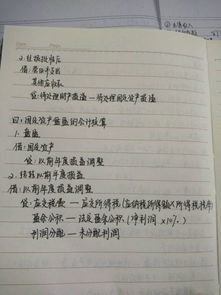 2. 转报批准后
借:营业外支出
其他应收款
贷:待处理财产损溢—待处理固定资产损溢
四:固定资产盘盈的会计核算
1. 盘盈
借:固定资产
贷:以前年度损益调整
2. 结转以前年度损益
借:以前年度损益调整
贷:应交税费—应交所得税(应纳税所得额×所得税税率)
盈余公积—法定盈余公积(净利润×10%)
利润分配—未分配利润